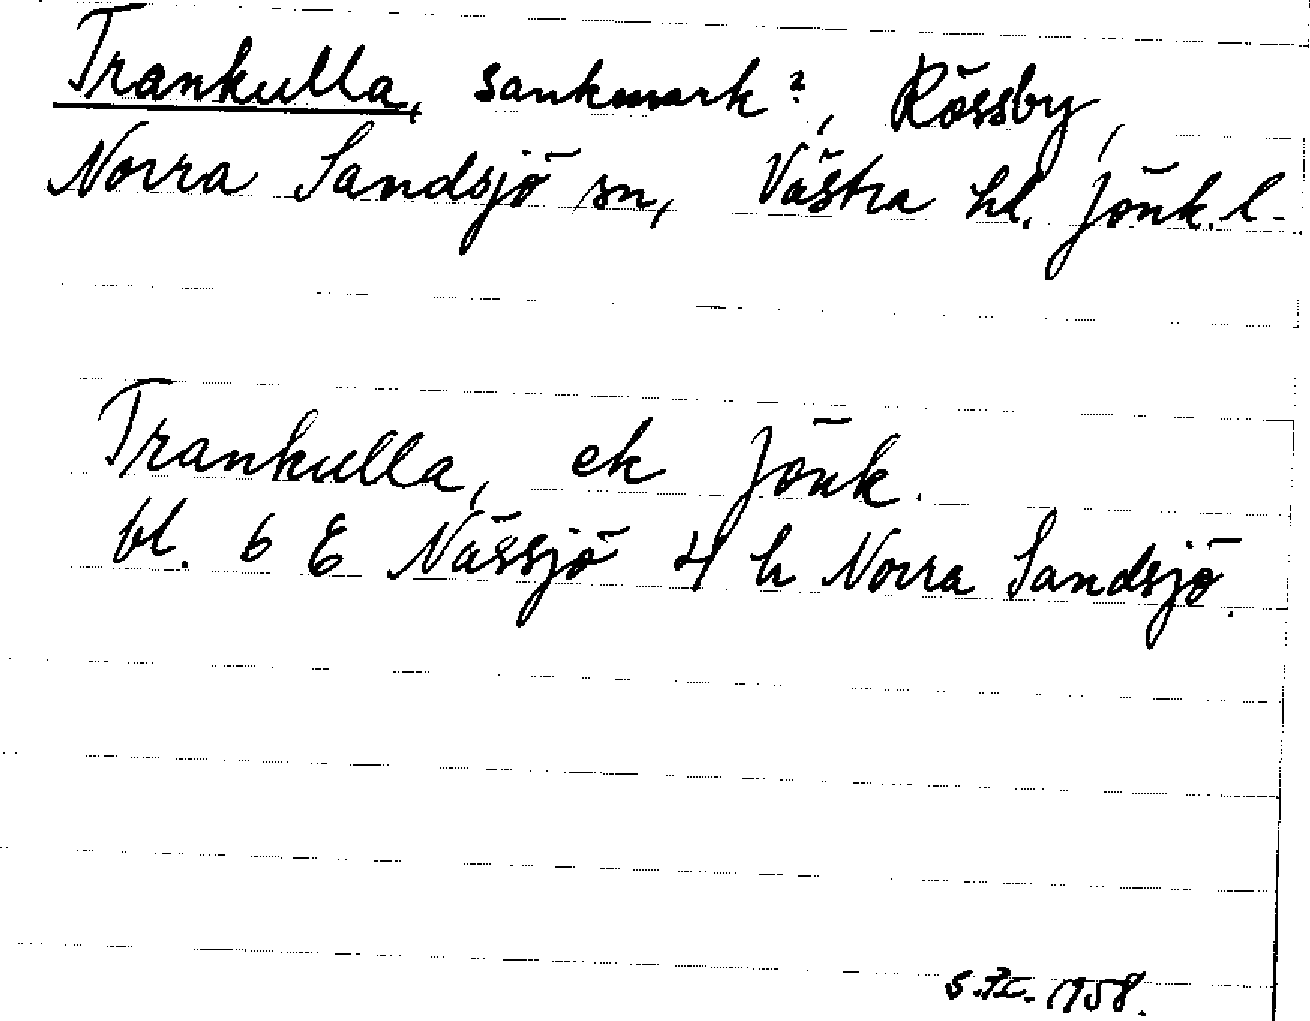 Trankulla, sankmark?, Rössby,
Norra Sandsjö sn, Västra hd. Jönk. l.
Trankulla, ek Jönk.
bl. 6 E Nässjö 4 h Norra Sandsjö.
1958.